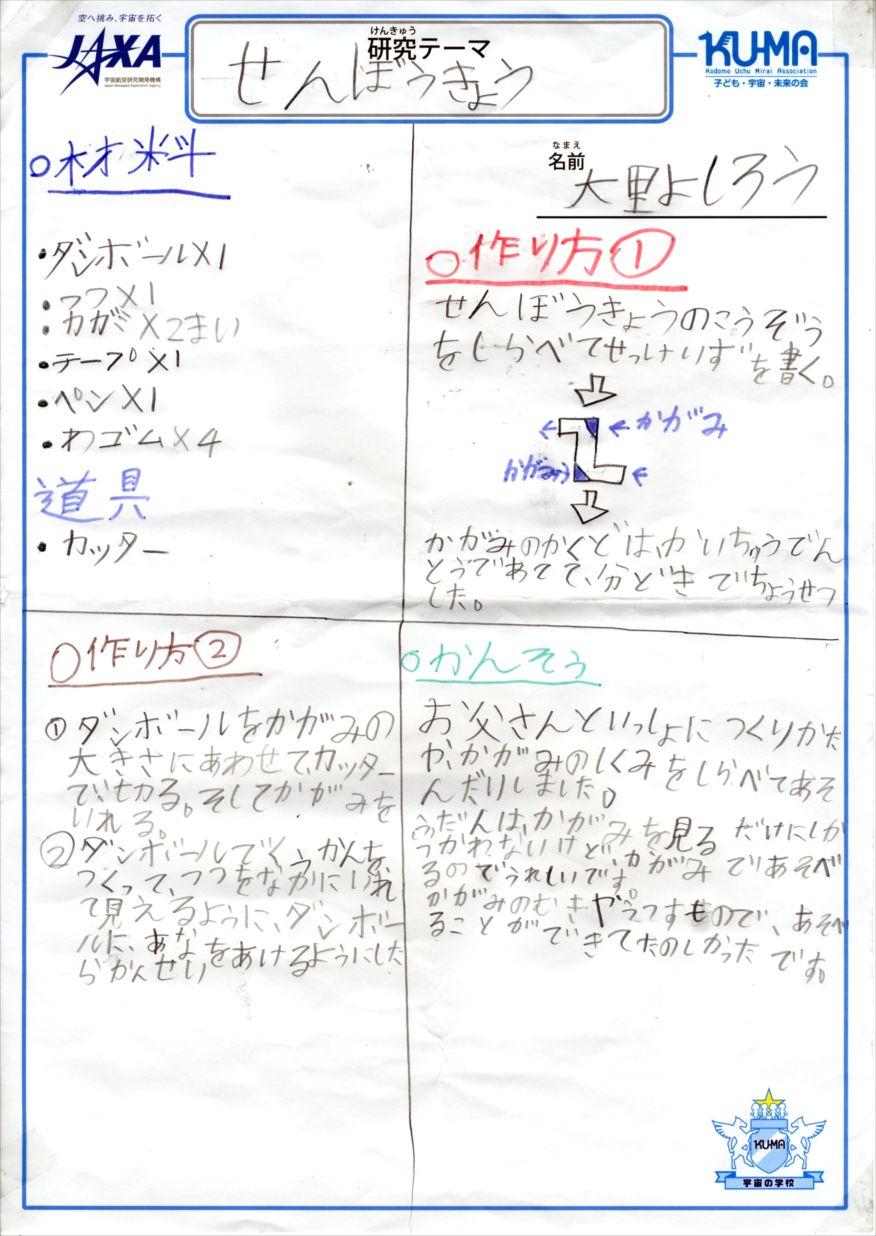 空へ挑み、宇宙を拓く
JAXA
宇宙航空研究開発機構
Japan Aerospace Exploration Agency
けんきゅう
研究テーマ
せんぼうきょう
KU-MA
Kodomo Uchu Mirai Association
子ども・宇宙・未来の会
なまえ
名前
大里よしろう
○材料
・ダンボール×1
・つつ×1
・カガミ×2まい
・テープ×1
・ペン×1
・わゴム×4
道具
・カッター
○作り方①
せんぼうきょうのこうぞう
をしらべてせっけいずを書く。
←かがみ
かがみ
かがみのかくどは、かいちゅうでん
とうであてて、分どきでちょうせつ
した。
○作り方②
①ダンボールをかがみの
大きさにあわせて、カッター
で、切る。そしてかがみを
いれる。
②ダンボールでくうかんを
つくって、つつをなかにいれ
て見えるように、ダンボー
ルに、あなをあけるようにした
らかんせい
○かんそう
お父さんといっしょにつくりかた
や、かがみのしくみをしらべてあそ
んだりしました。
ふだんは、かがみを見るだけにしか
つかわないけど、かがみであそべ
るのでうれしいです。
かがみのむきやうつすもので、あそべ
ることができてたのしかったです。
KU-MA
宇宙の学校